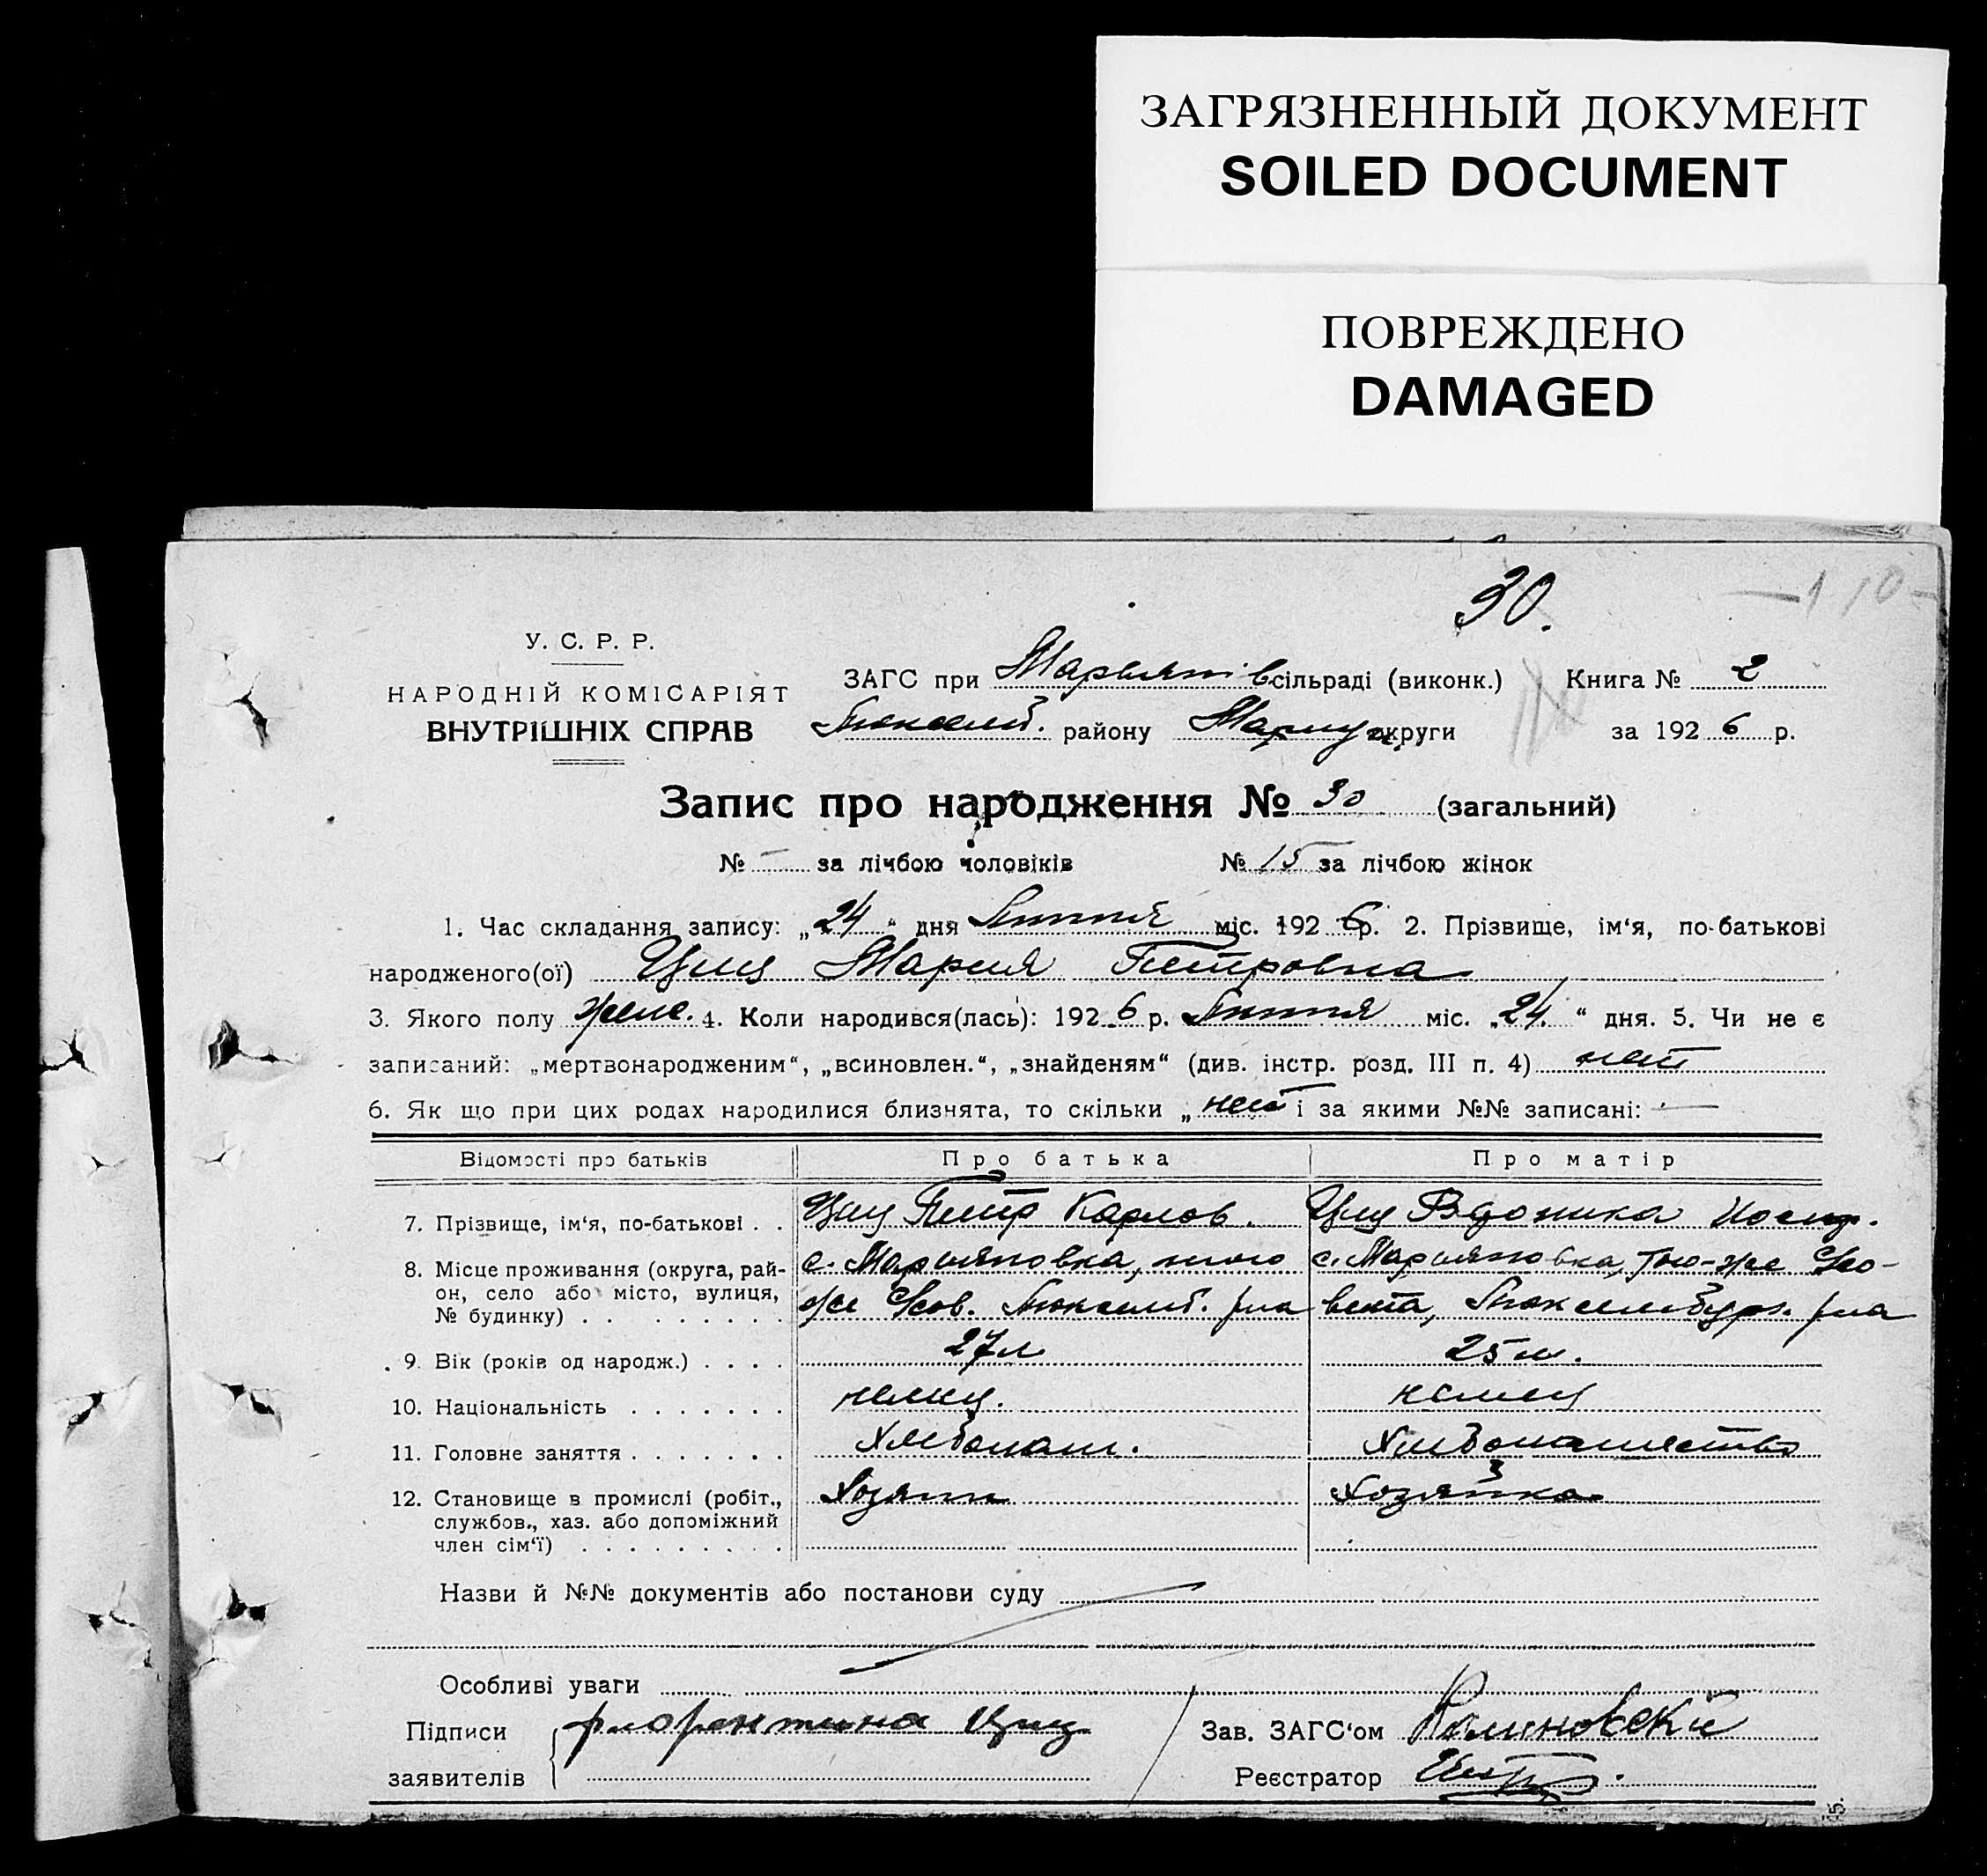 ЗАГРЯЗНЕННЫЙ ДОКУМЕНТ
SOILED DOCUMENT
ПОВРЕЖДЕНО
DAMAGED
30.
У. С. Р. Р.
НАРОДНІЙ КОМІСАРІЯТ
ВНУТРІШНІХ СПРАВ
ЗАГС при Марьянів сільраді (виконк.) Книга № 2
району округи за 1926 р.
Запис про народження № 30 (загальний)
№ — за лічбою чоловіків № 15 за лічбою жінок
1. Час складання запису: „24“ дня міс. 1926 р. 2. Прізвище, ім‘я, по-батькові
народженого(ої) Циц Мария Петровна
3. Якого полу женс. 4. Коли народився(лась): 1926 р. міс. „24.“ дня. 5. Чи не є
записаний: „мертвонародженим“, „всиновлен.“, „знайденям“ (див. інстр. розд. III п. 4) нет
6. Як що при цих родах народилися близнята, то скільки „нет і за якими №№ записані: —
Відомості про батьків Про батька Про матір
7. Прізвище, ім‘я, по-батькові . . Циц Петр Карлов. Циц Иосиф.
8. Місце проживання (округа, рай- с. Марьяновка, того с. Марьяновка, того-же Сео-
он, село або місто, вулиця, же р-на вета, Люксембург. р-на
№ будинку) . . . . . . . . .
9. Вік (років од народж.) . . . . 27 л 25 л.
10. Національність . . . . . . . немец. немец
11. Головне заняття . . . . . . . Хлебопаш. Хлебопашество
12. Становище в промислі (робіт., Хозяин Хозяйка
службов., хаз. або допоміжний
член сім‘ї) . . . . . . . . .
Назви й №№ документів або постанови суду
Особливі уваги
Підписи флорентина Циц Зав. ЗАГС‘ом
заявителів Реєстратор